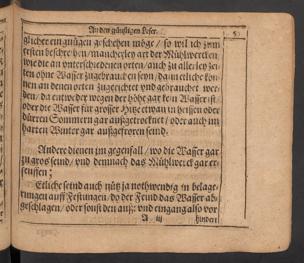 An den günstigen Leser.
glicher ein gnügen geschehen möge / so wil ich zum
ersten beschreiben / mancherley art der Mühlwerck ein
wie die an unterschiedenen orten / auch zu allerley zei-
ten ohne Wasser zugebrauchen seyn / dann etliche kön-
nen an denen orten zugerichtet und gebrauchet wer-
den / da entweder wegen der höhe gar kein Wasser ist /
oder die Wasser für grosser Hitze etwan in heissen oder
dürren Sommern gar außgetrocknet / oder auch im
harten Winter gar außgefroren seind.
Andere dienen im gegenfall / wo die Wasser gar
zu groß seind / und demnach das Mühlwerck gar er-
seuffen;
Etliche seind auch nütz ja nothwendig in belage-
rungen auff Festungen / do der Feind das Wasser ab-
geschlagen / oder sonst den auß: und eingang also vor
A iij
hindert